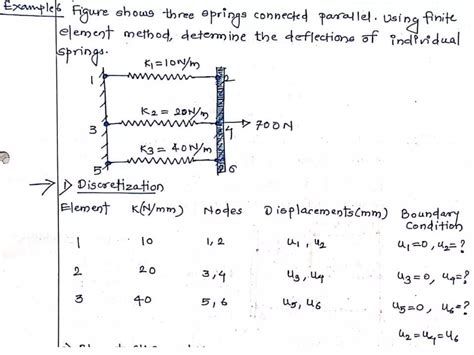 Example6 Figure shows three springs connected parallel. Using finite
element method, determine the deflections of individual
springs.
K1=10N/m
1
2
K2 = 20N/m
3
4
700N
K3 = 40N/m
5
6
→ 1) Discretization
Element K(N/mm) Nodes Displacements(mm) Boundary
Condition
1 10 1,2 u1, u2 u1=0, u2=?
2 20 3,4 u3, u4 u3=0, u4=?
3 40 5,6 u5, u6 u5=0, u6=?
u2=u4=u6